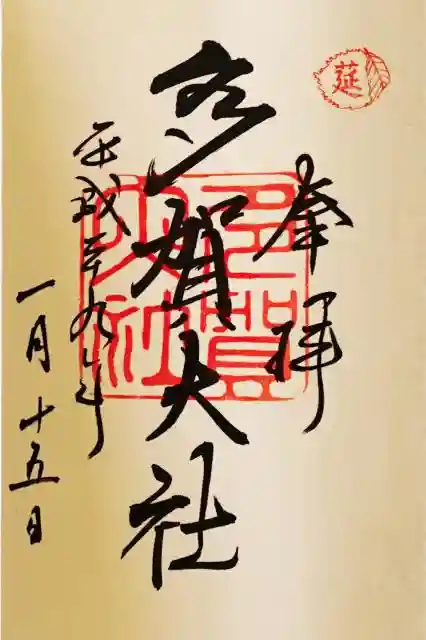 莚
奉拝
多賀大社
多賀大社
平成二十九年
一月十五日